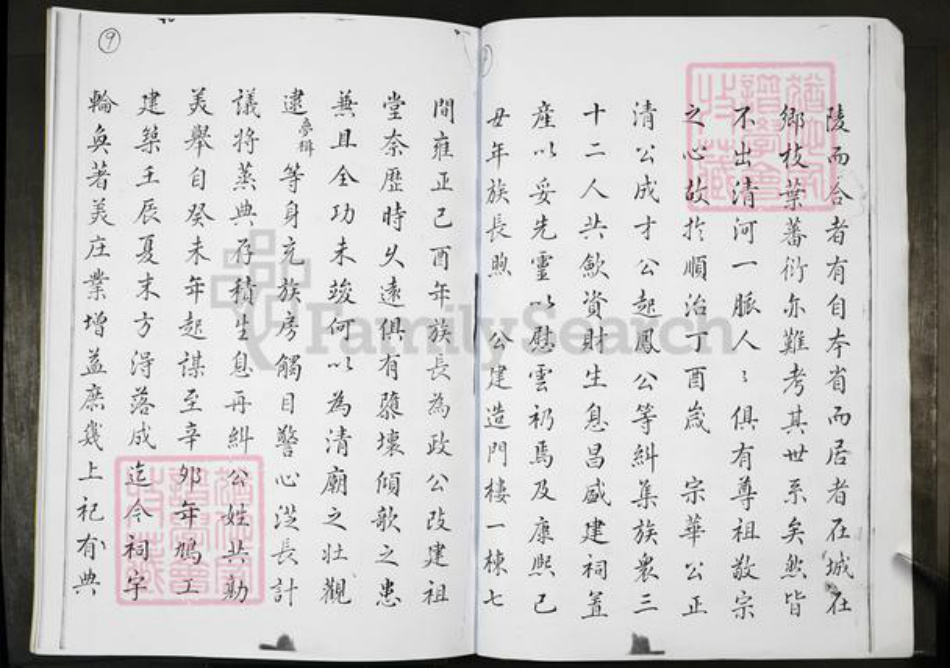 陵而合者有自本省而居者在城在
鄉枝葉蕃衍亦難考其世系矣然皆
不出清河一脈人々俱有尊祖敬宗
之心故於順治丁酉歲 宗華公正
清公成才公起鳳公等糾集族眾三
十二人共斂資財生息昌盛建祠置
產以妥先靈以慰雲礽焉及康熙己
丑年族長煦 公建造門樓一棟七
間雍正己酉年族長為政公改建祖
堂奈歷時久遠俱有隳壞傾欹之患
兼且全功未竣何以為清廟之壯觀
逮夢樹等身充族房觸目警心從長計
議將蒸典存積生息再糾公姓共勷
美舉自癸未年起謀至辛卯年鳩工
建築壬辰夏末方得落成迄今祠宇
輪奐著美庄業增益庶幾上祀有典
9
FamilySearch